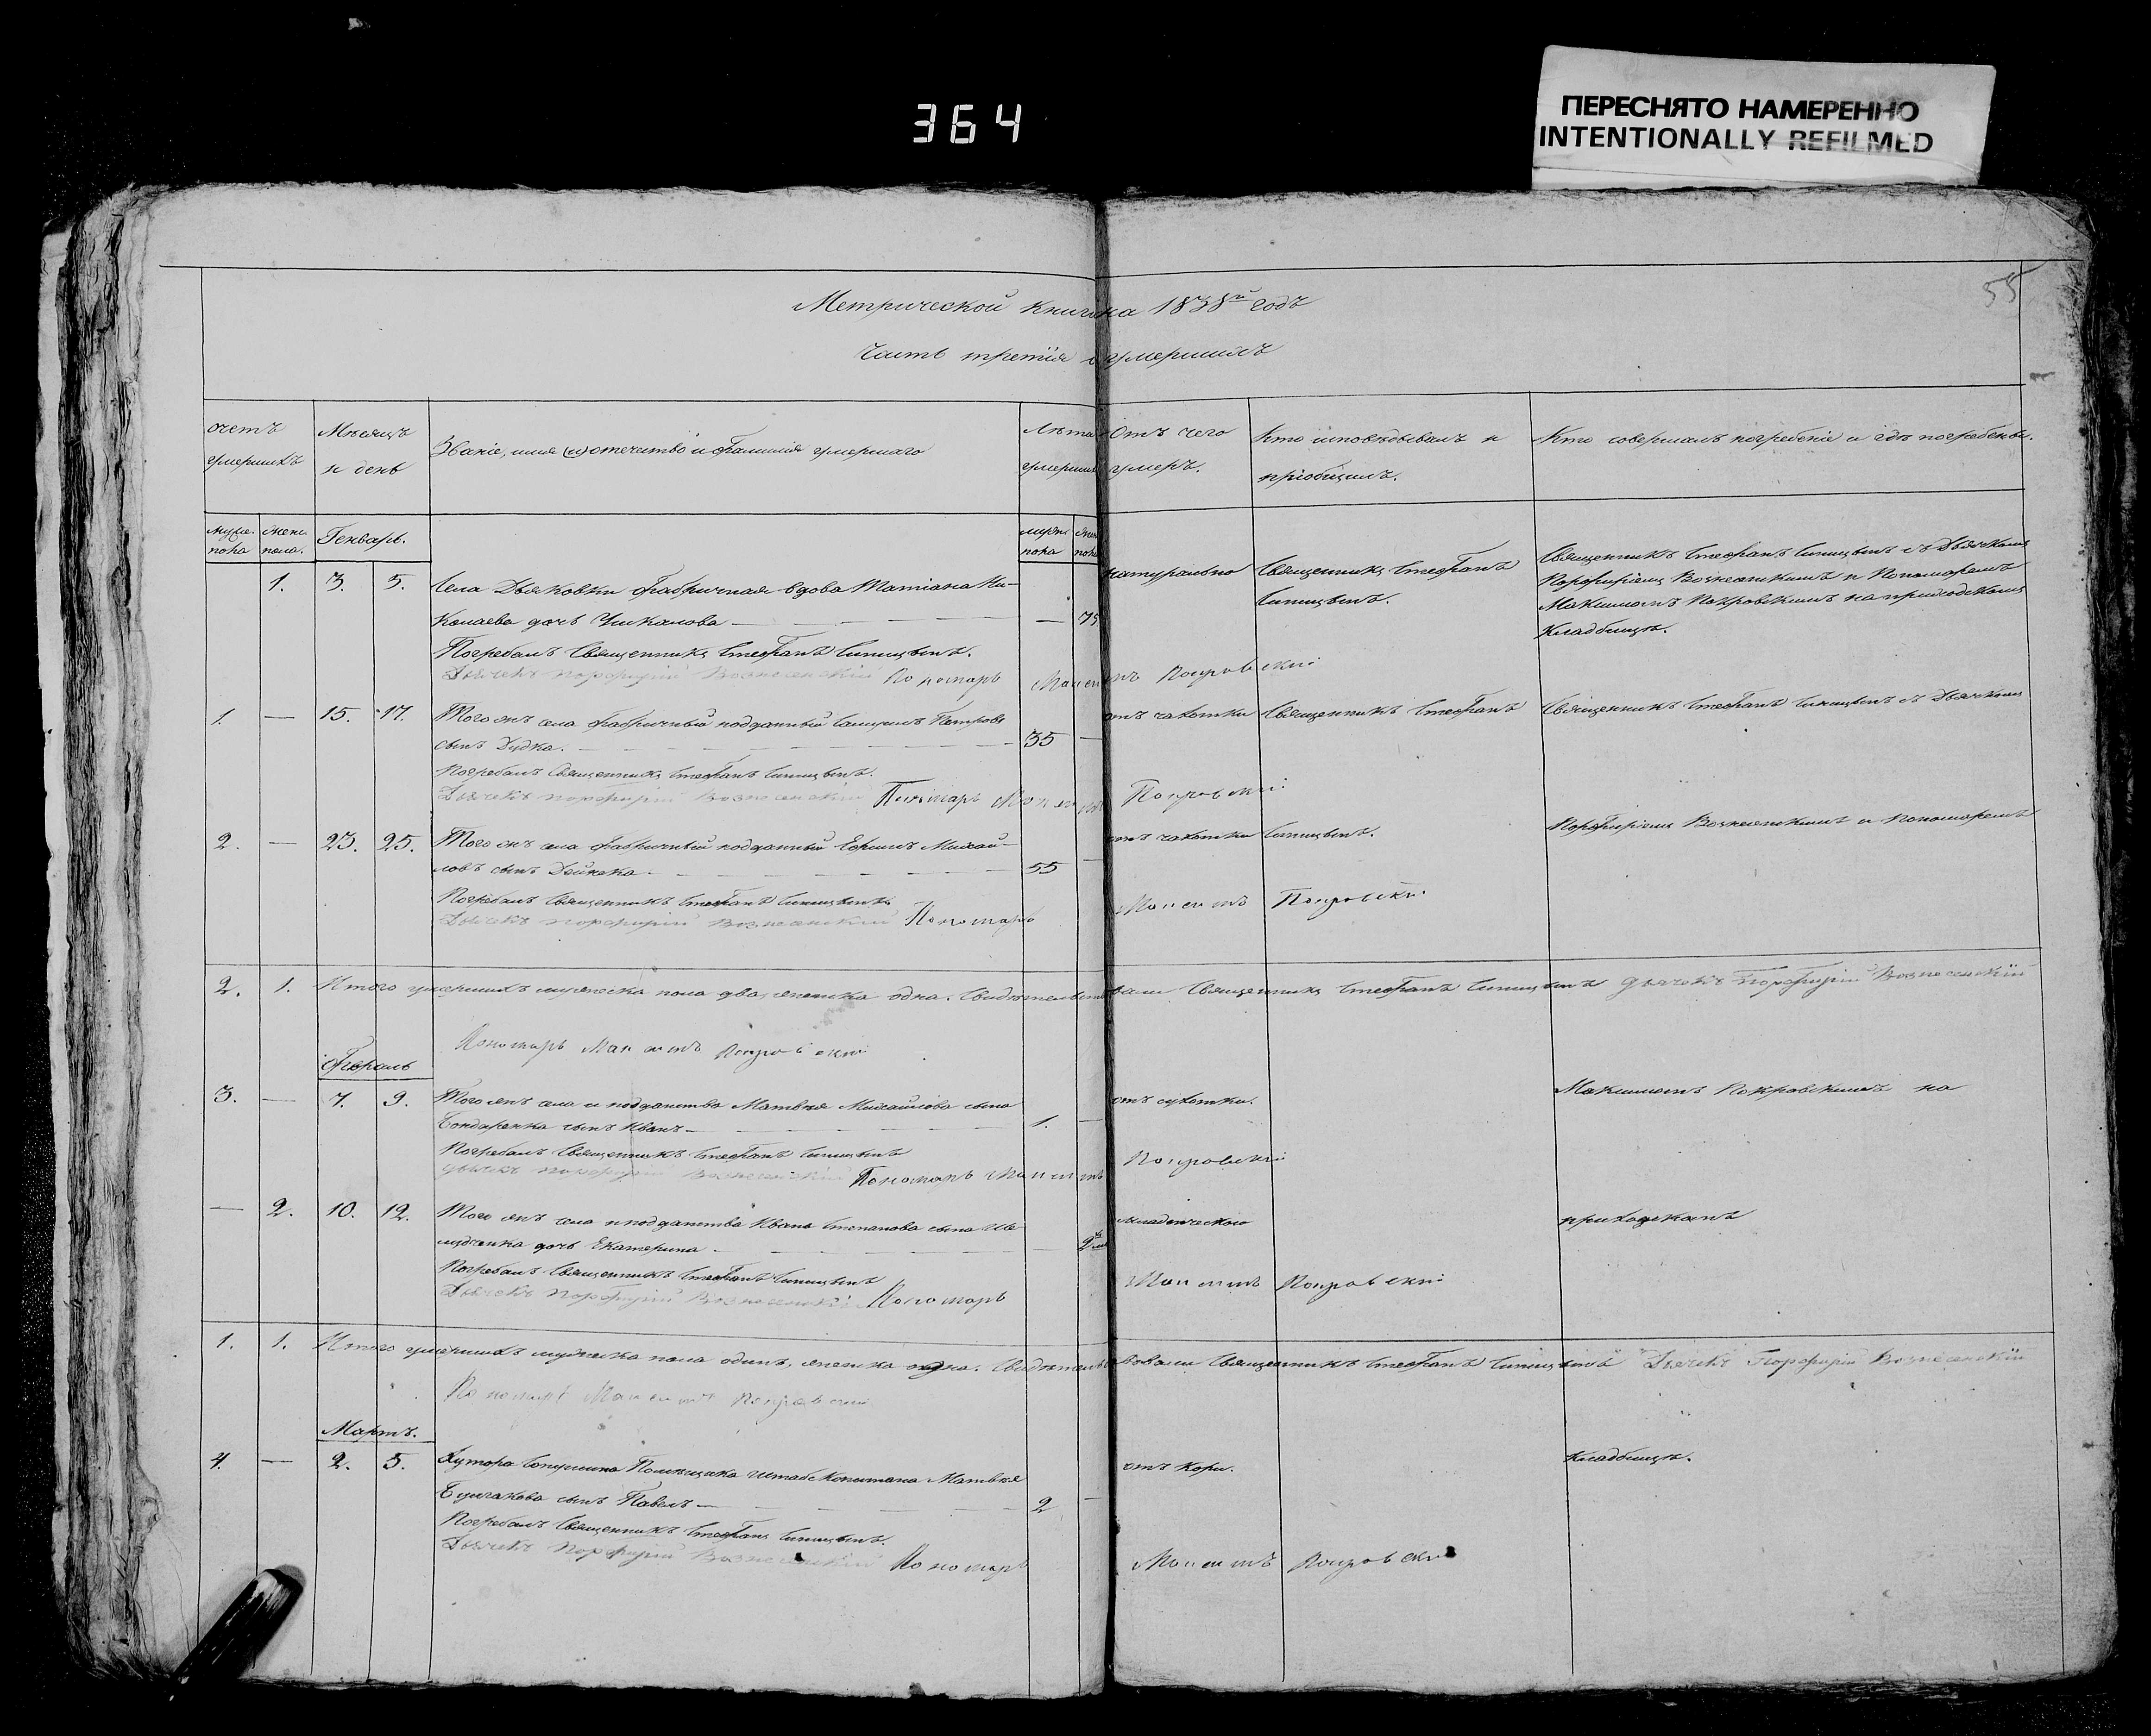 364
ПЕРЕСНЯТО НАМЕРЕННО
INTENTIONALLY REFILMED
55
Метрической книги на 1838й годъ
часть третія о умершихъ
счетъ умершихъ
Мѣсяцъ и день
Званіе, имя (и) отечество и фамилія умершаго
Лѣта умершихъ
Отъ чего умеръ.
Кто исповѣдывалъ и пріобщилъ.
Кто совершалъ погребеніе и гдѣ погребены.
муже. пола
женс. пола.
Генварь.
мужс. пола
жен. пола
1. 3. 5. Села Дьяковки фабричная вдова Татіана Ни-
колаева дочь Чикалова — — 75
натурально
Священникъ Стефанъ
Синицынъ.
Священникъ Стефанъ Синицынъ съ Дьячкомъ
Порфиріемъ Вознесенскимъ и Пономаремъ
Максимомъ Покровскимъ на приходскомъ
кладбищѣ.
Погребалъ Священникъ Стефанъ Синицынъ.
Дьячекъ Порфирій Вознесенскій Пономарь Максимъ Покровскій
1. — 15. 17. Того жъ села фабричный подданный Петровъ
сынъ Дудка. — 35 —
отъ чахотки Священникъ Стефанъ
Священникъ Стефанъ Синицынъ съ Дьячкомъ
Погребалъ Священникъ Стефанъ Синицынъ.
Дьячекъ Порфирій Вознесенскій Пономарь Максимъ Покровскій
2. — 23. 25. Того жъ села фабричный подданный Михай-
ловъ сынъ Дейнека — 55 —
отъ чахотки Синицынъ.
Порфиріемъ Вознесенскимъ и Пономаремъ
Погребалъ Священникъ Стефанъ Синицынъ
Дьячекъ Порфирій Вознесенскій Пономарь Максимъ Покровскій
2. 1. Итого умершихъ мужеска пола два, женска одна. Свидѣтельствовали Священникъ Стефанъ Синицынъ Дьячекъ Порфирій Вознесенскій
Пономарь Максимъ Покровскій
Февраль
3. — 7. 9. Того жъ села и подданства Матвѣя Михайлова сына
Бондаренка сынъ Иванъ — 1. —
отъ сухотки.
Максимомъ Покровскимъ на
Погребалъ Священникъ Стефанъ Синицынъ
Дьячекъ Порфирій Вознесенскій Пономарь Максимъ Покровскій
— 2. 10. 12. Того жъ села и подданства Ивана Степанова сына
дочь Екатерина — —
младенческою
приходскомъ
Погребалъ Священникъ Стефанъ Синицынъ
Дьячекъ Порфирій Вознесенскій Пономарь Максимъ Покровскій
1. 1. Итого умершихъ мужеска пола одинъ, женска одна. Свидѣтельствовали Священникъ Стефанъ Синицынъ Дьячекъ Порфирій Вознесенскій
Пономарь Максимъ Покровскій
Мартъ.
4. — 2. 5. Хутора Помѣщика Штабс Капитана Матвѣя
сынъ Павелъ — 2 —
отъ кори.
кладбищѣ.
Погребалъ Священникъ Стефанъ Синицынъ.
Дьячекъ Порфирій Вознесенскій Пономарь Максимъ Покровскій